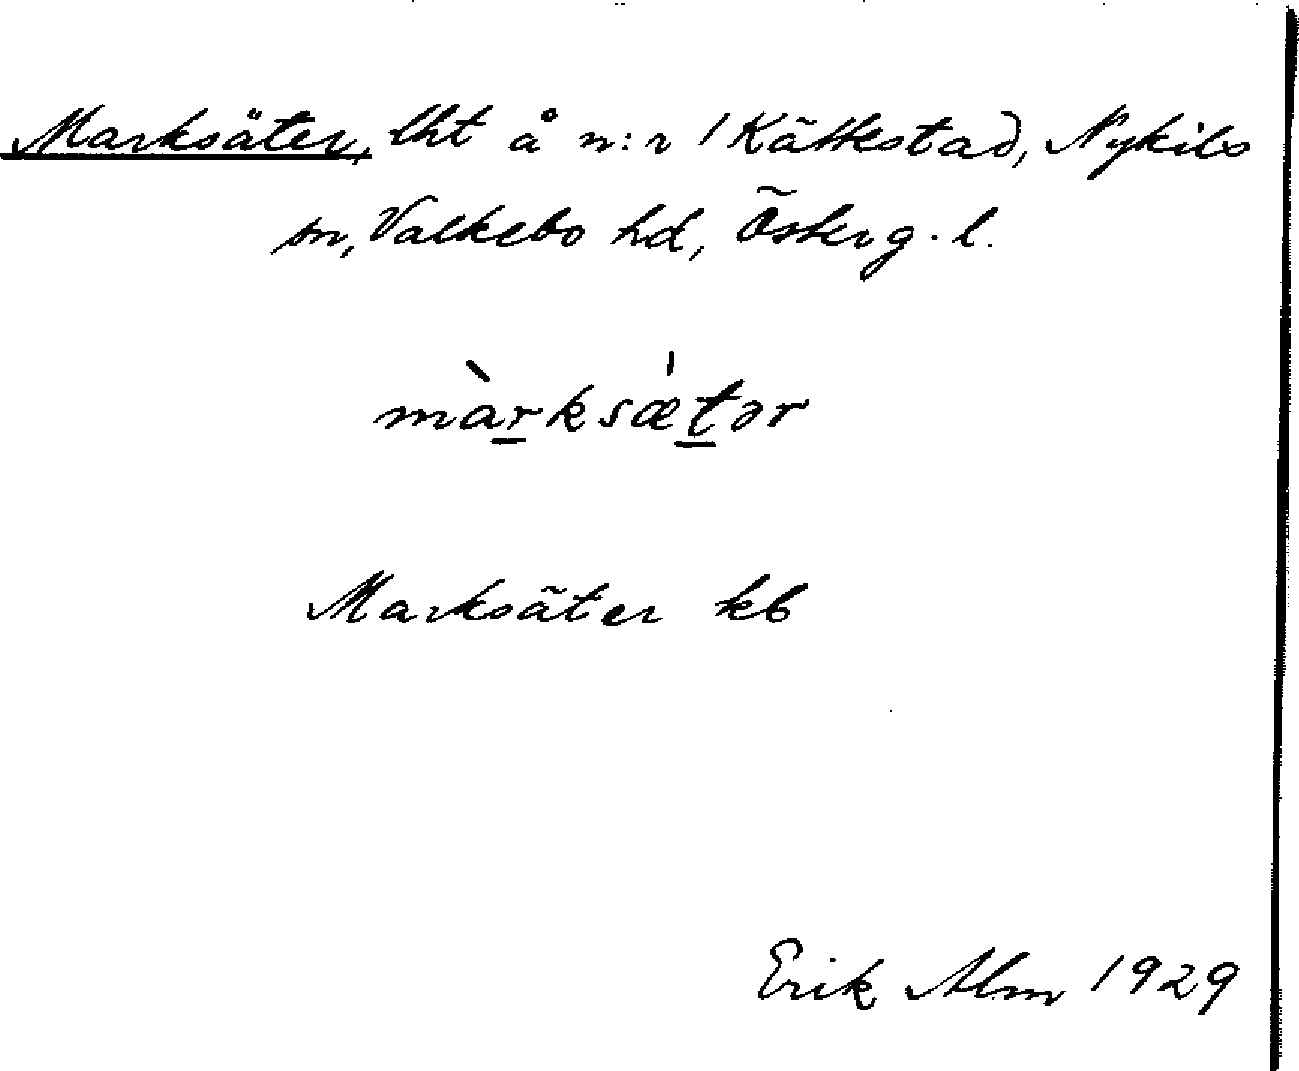 Marksäter, lht å n:r 1 Kättestad, Nykils
sn, Valkebo hd, Österg. l.
màrksæ̍tər
Marksäter kb
Erik Alm 1929